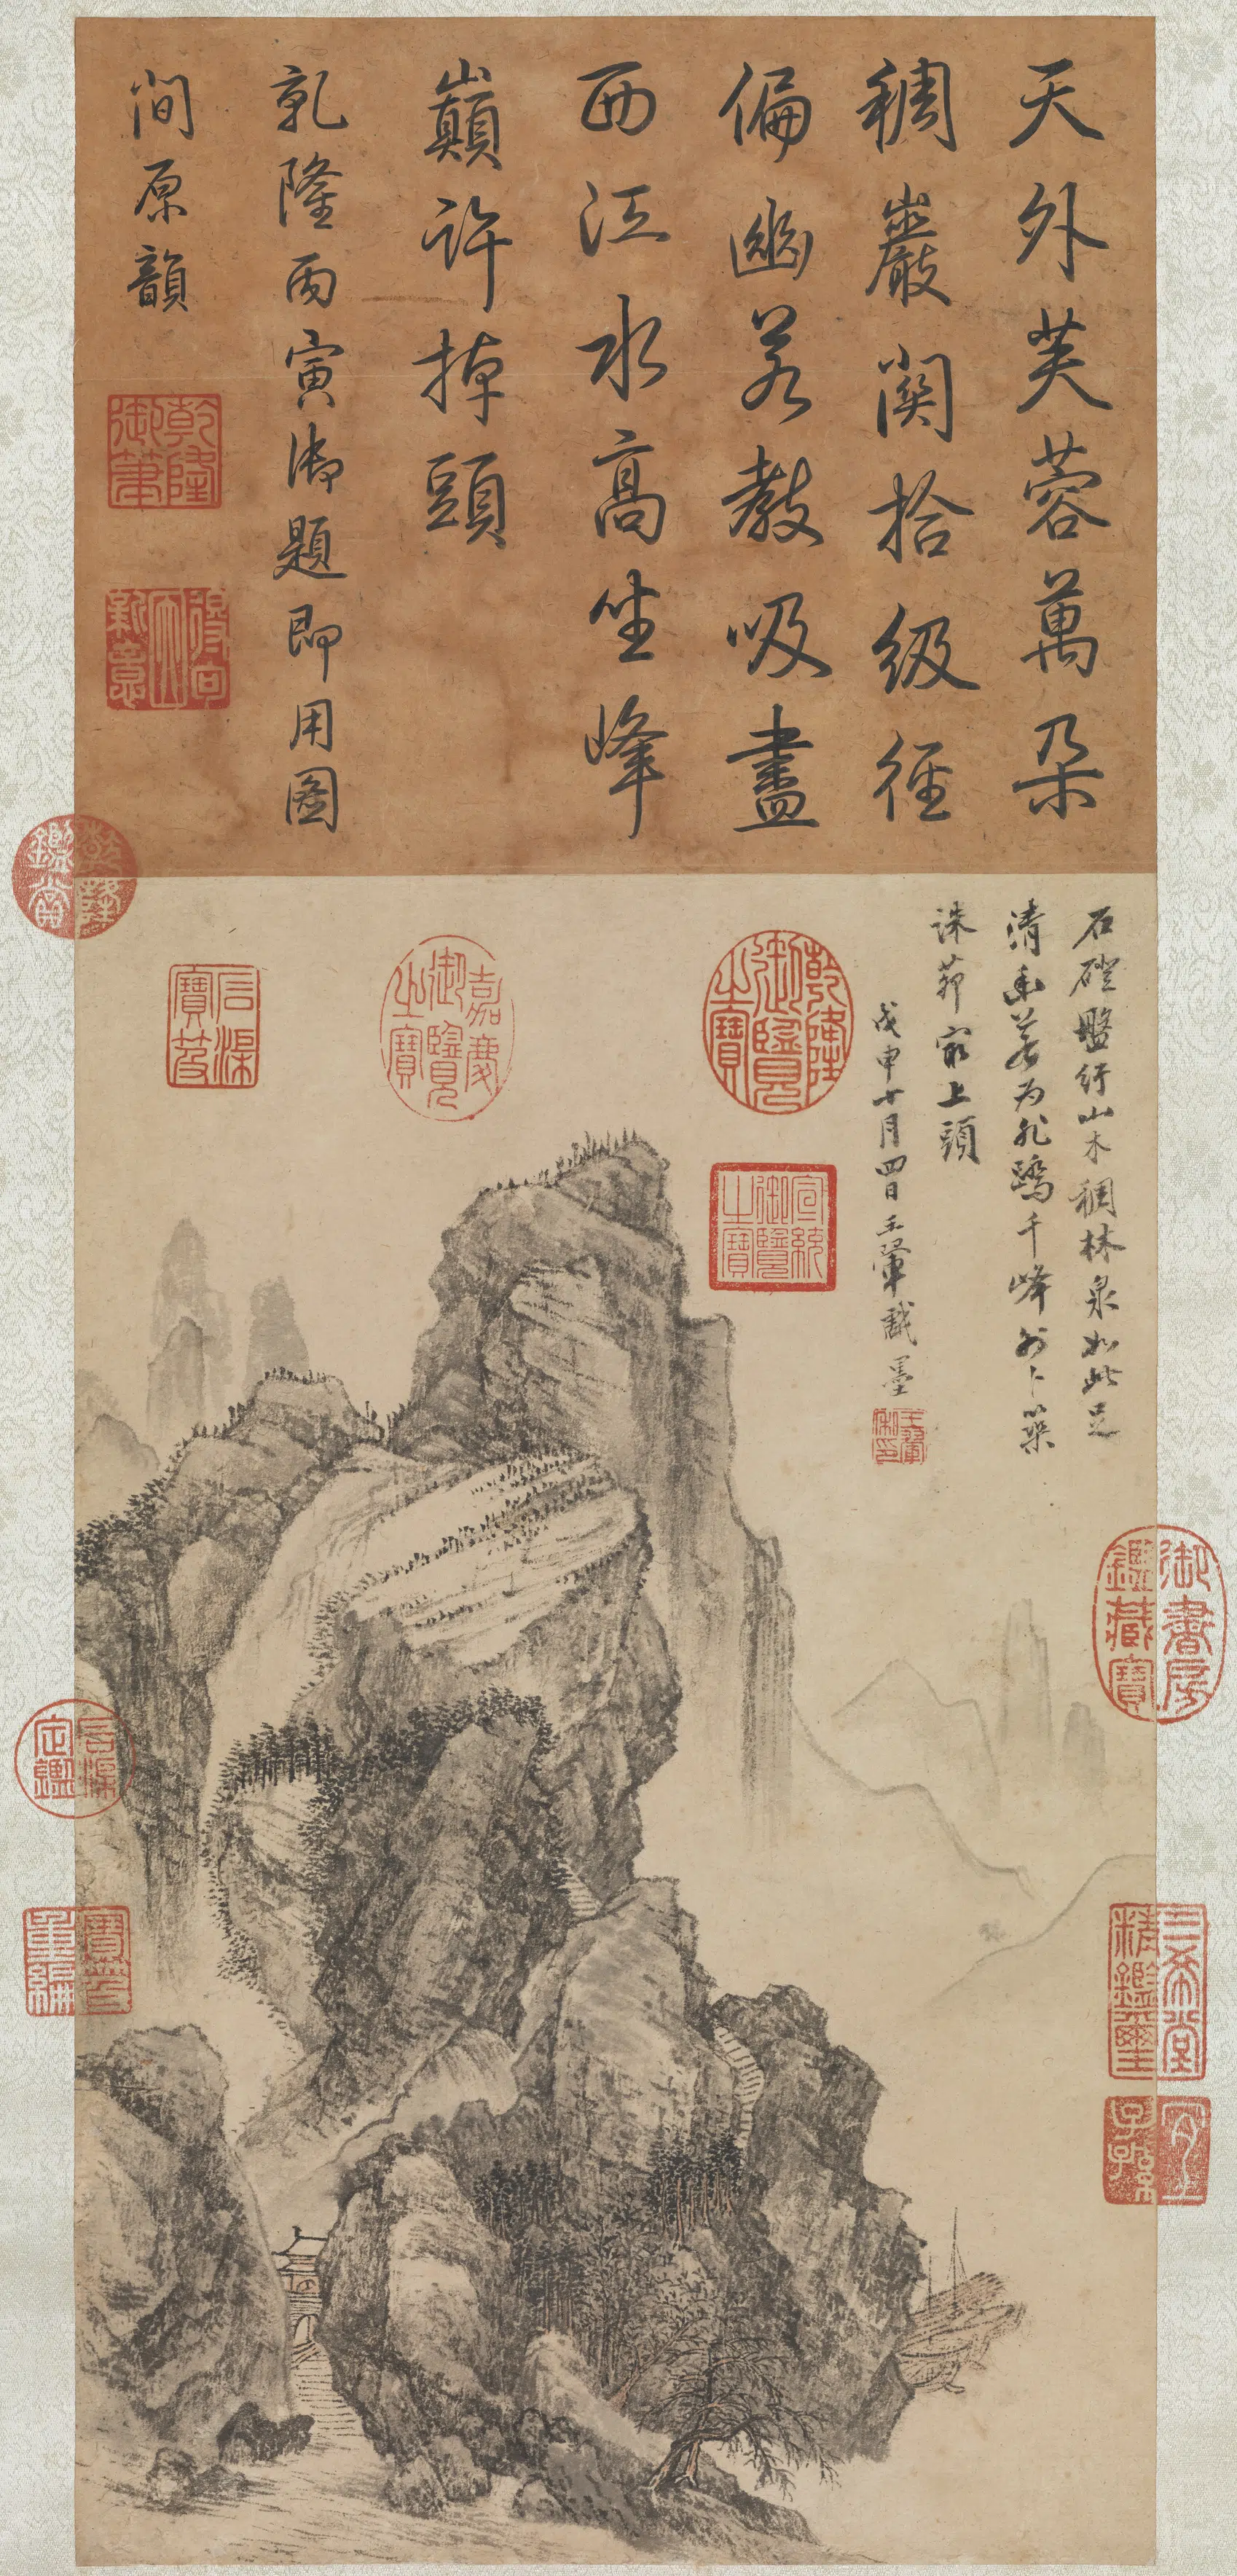 天外芙蓉萬朵
稠巖關拾級徑
偏幽若教吸盡
西江水高坐峰
巔許掉頭
乾隆丙寅御題即用圖
間原韻
乾隆
御筆
乾隆
鑑賞
石渠
寶笈
嘉慶
御覽
之寶
乾隆
御覽
之寶
宣統
御覽
之寶
石磴盤紆山木稠林泉如此足
清幽若為飛蹻千峰外卜築
誅茆最上頭
戊申十月四日王翬戲墨
御書房
鑑藏寶
石渠
定鑑
寶笈
重編
三希堂
精鑑璽
宜
子孫